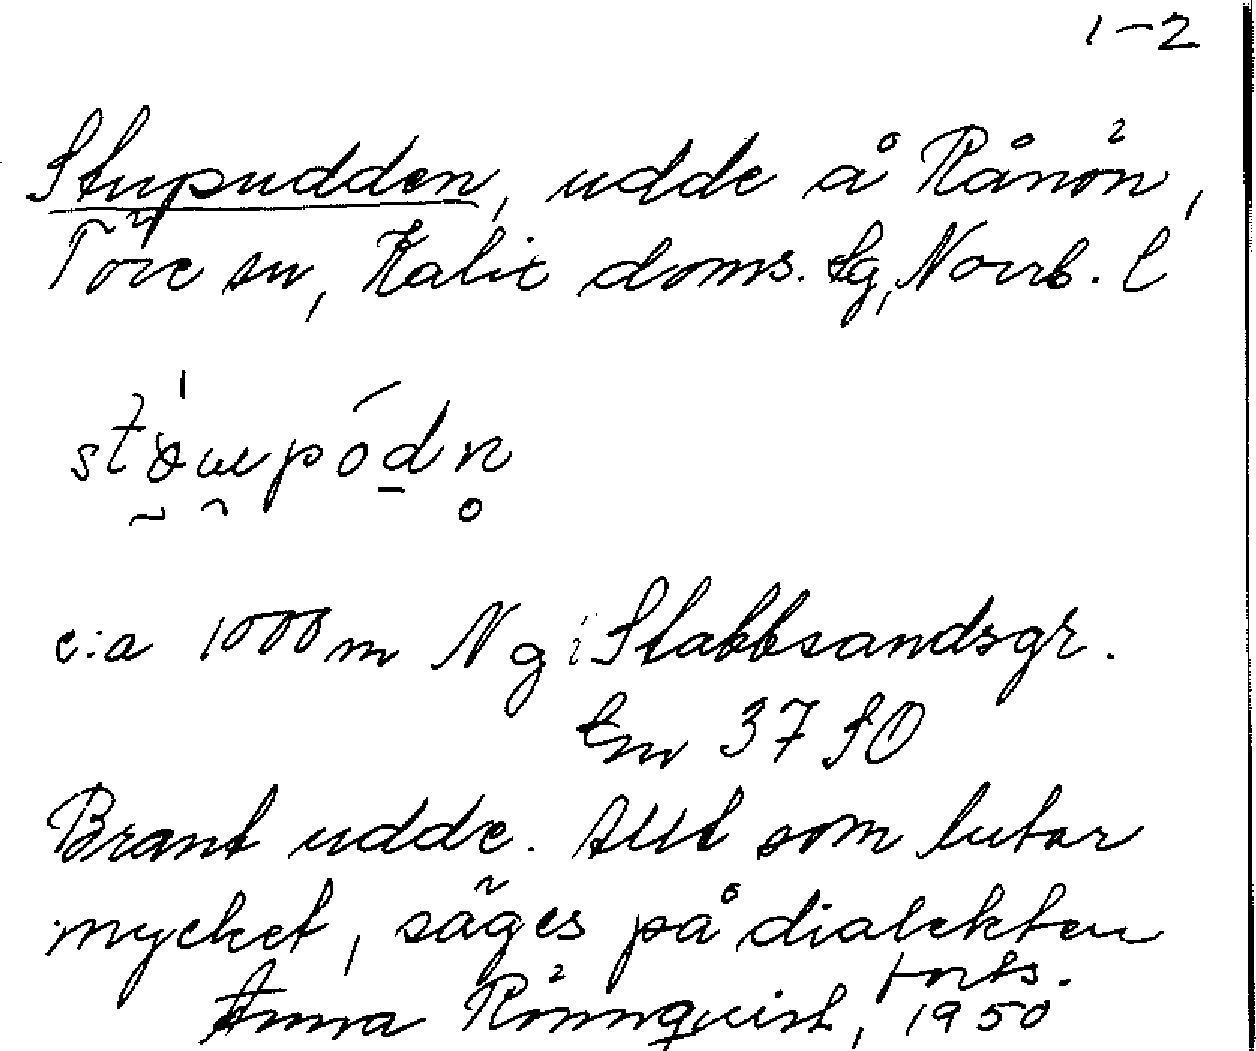 1-2
Stupudden, udde å Rånön,
Töre sn, Kalix doms. sg, Norrb. l
c:a 1000 m N g i Stabbsandsgr.
tm 3750
Brant udde. Allt som lutar
mycket, säges på dialekten
forts.
Anna Rönnqvist, 1950